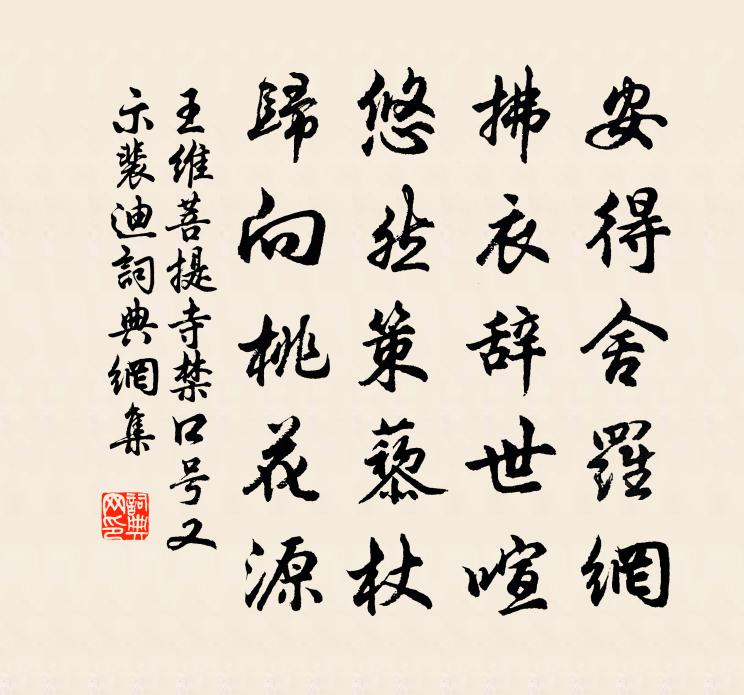 安得舍羅網
拂衣辞世喧
悠然策藜杖
歸向桃花源
王维菩提寺禁口号又
示裴迪詞典網集
詞典
网印